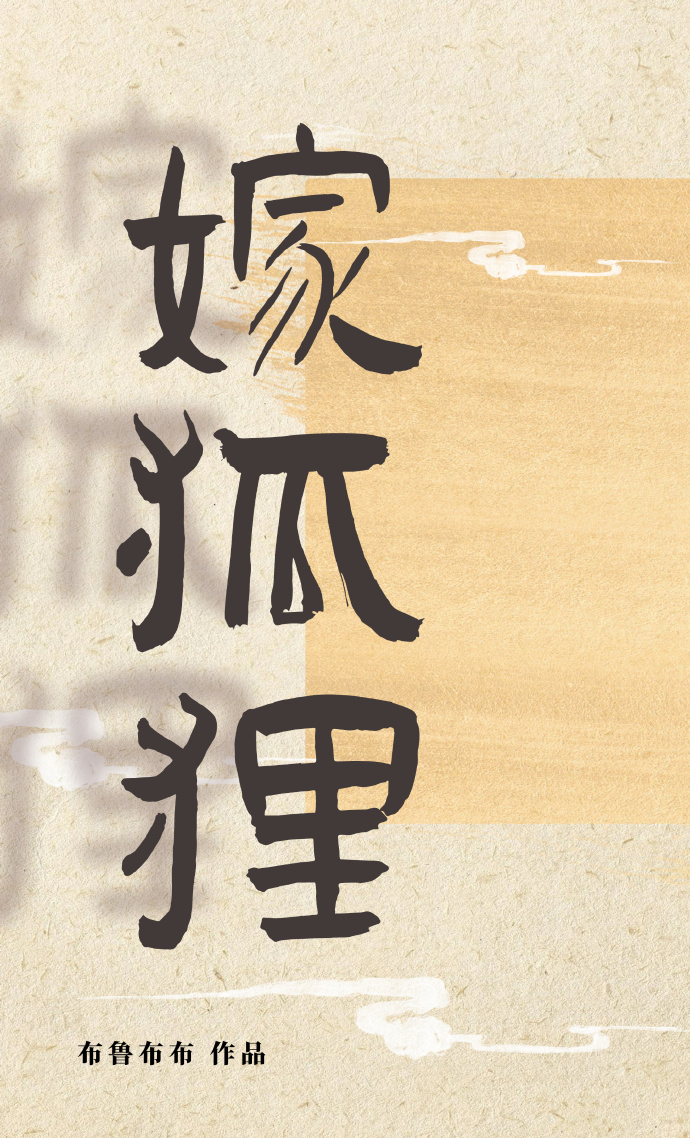 嫁狐狸
布鲁布布 作品